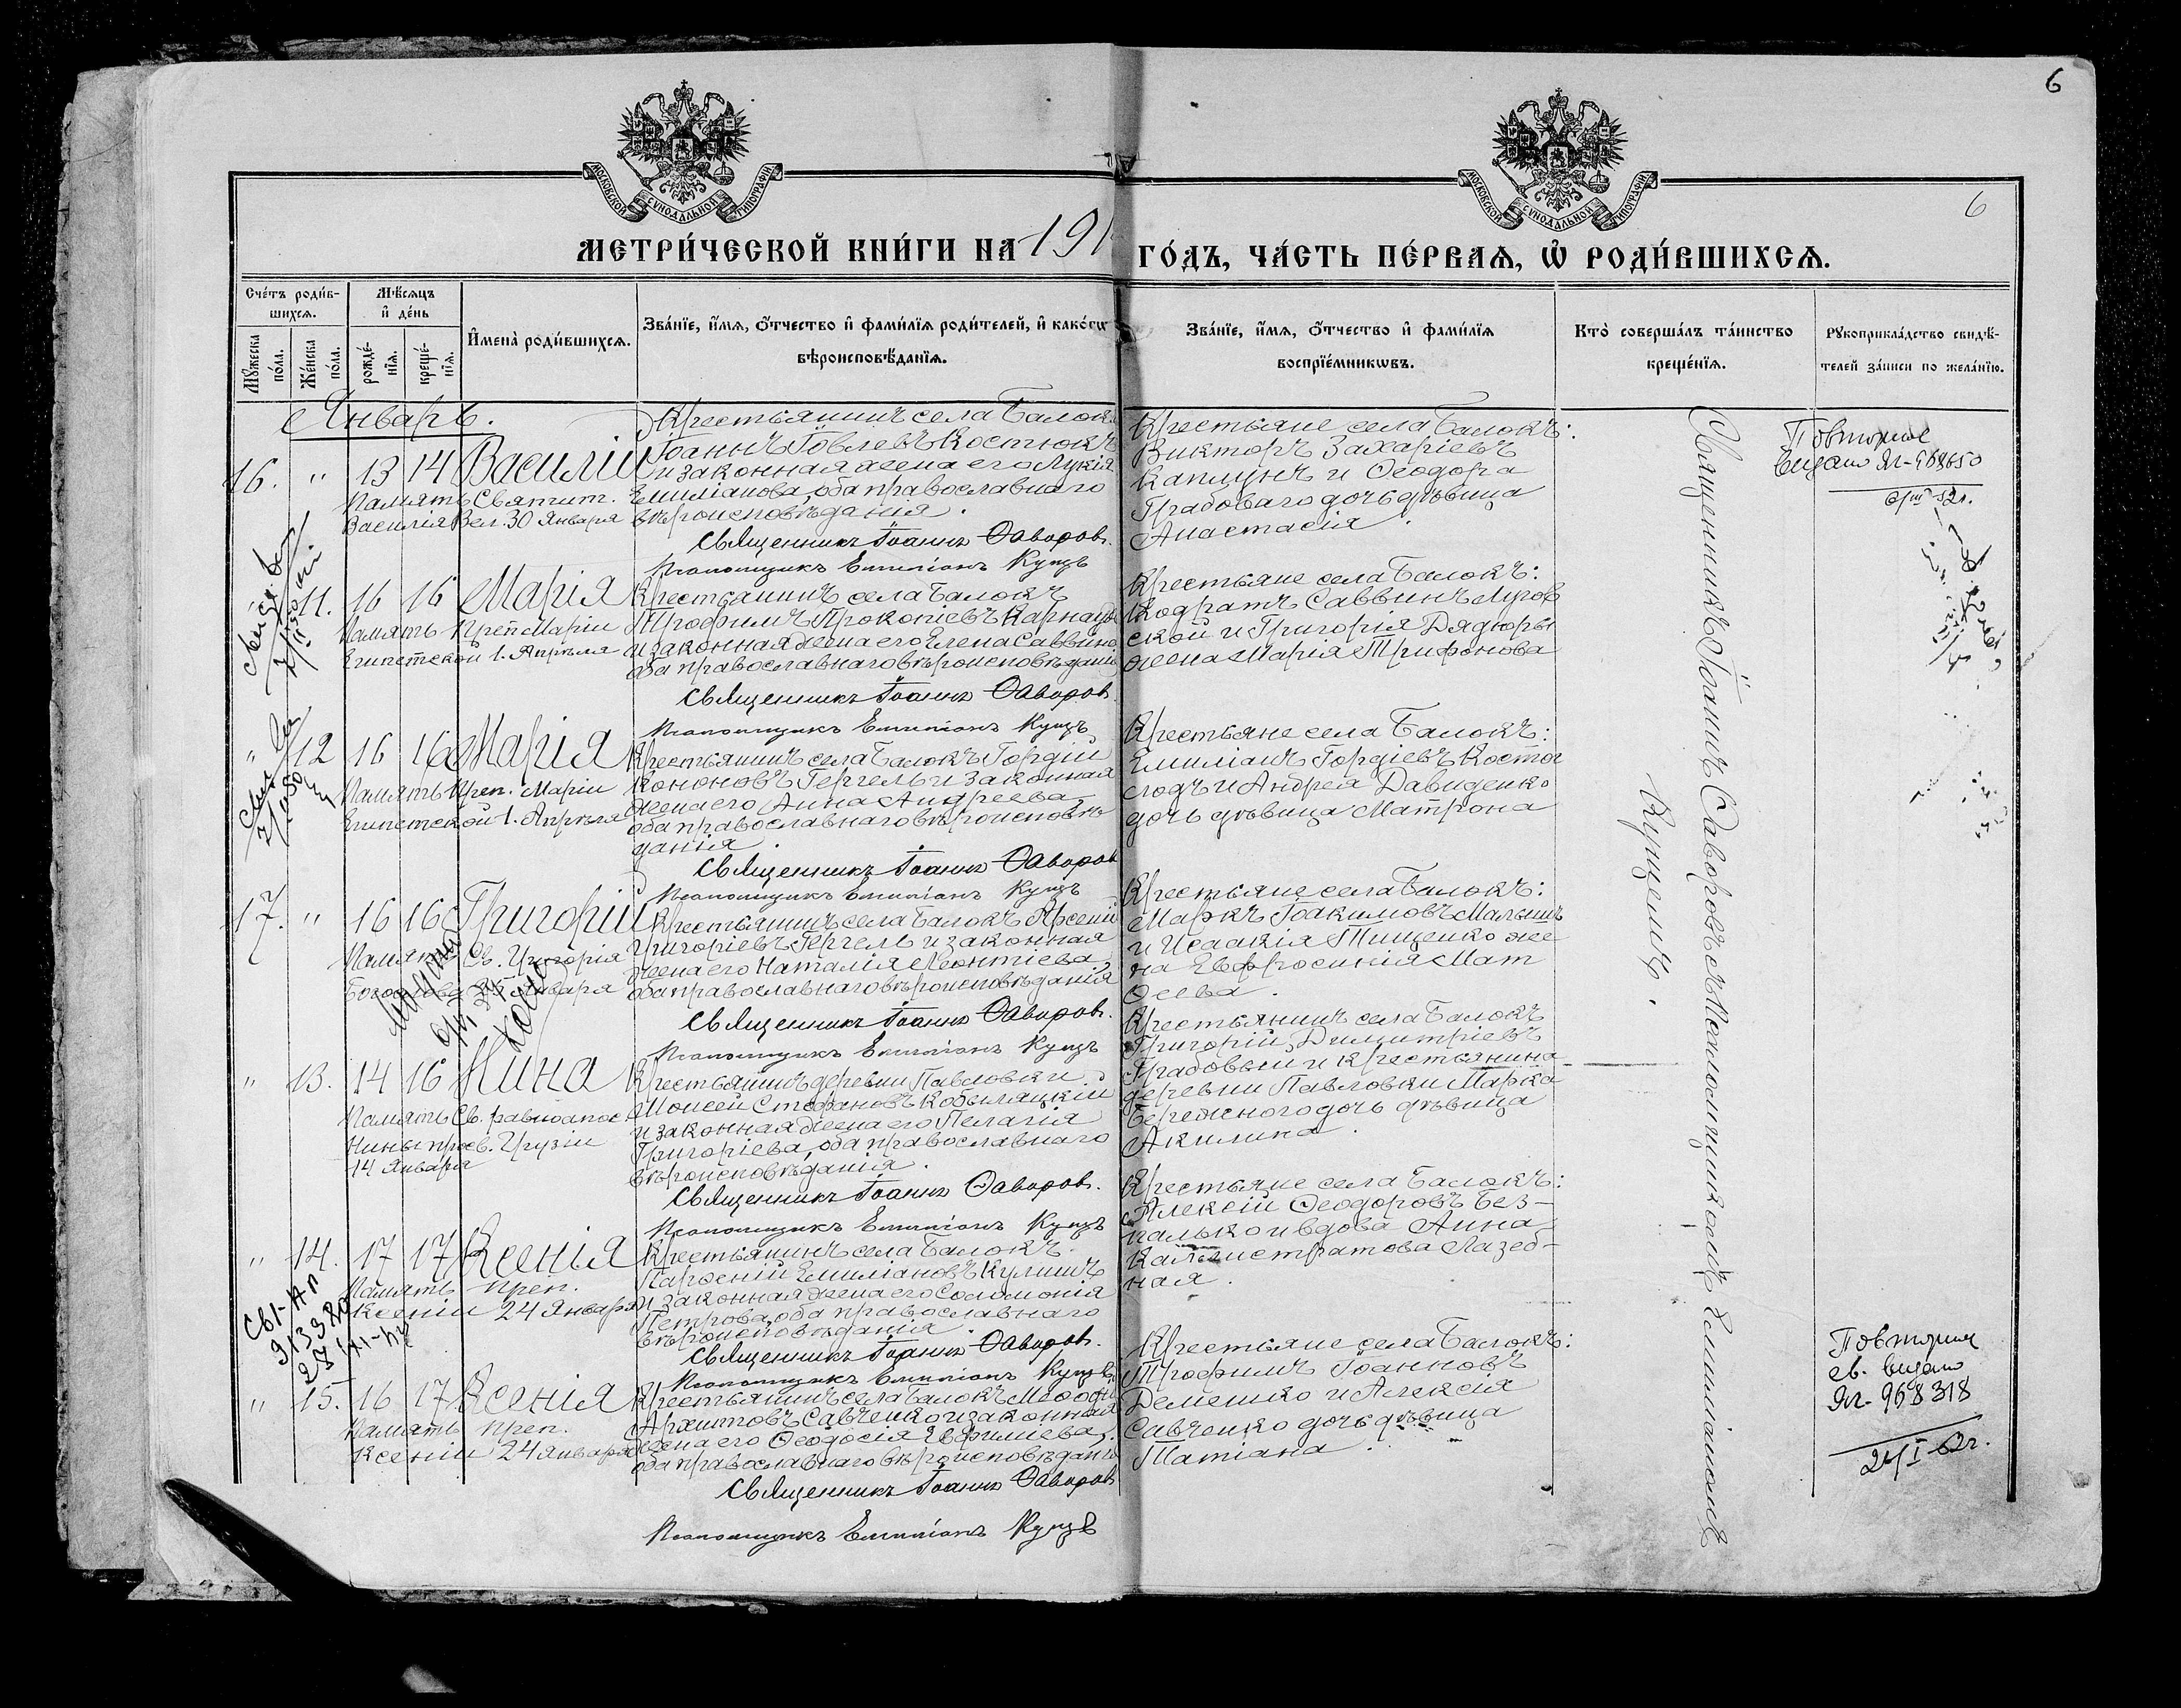 6
МОСКОВСКОЙ СѴНОДАЛЬНОЙ ТИПОГРАФІИ
МОСКОВСКОЙ СѴНОДАЛЬНОЙ ТИПОГРАФІИ
6
МЕТРИ́ЧЕСКОЙ КНИ́ГИ НА 191
ГО́ДЪ, ЧА́СТЬ ПЕ́РВАѦ, Ѡ҆ РОДИ́ВШИХСѦ.
Сче́тъ роди́в-
шихсѧ.
Мѣ́сѧцъ
и҆ де́нь
Мꙋ́жеска
по́ла.
Же́нска
по́ла.
рожде́-
нїѧ.
креще́-
нїѧ.
И҆мена̀ роди́вшихсѧ.
Зва́нїе, и҆́мѧ, ѻ҆́тчество и҆ фами́лїѧ роди́телей, и҆ како́гѡ
вѣроисповѣ́данїѧ.
Зва́нїе, и҆́мѧ, ѻ҆́тчество и҆ фами́лїѧ
воспрїе́мникѡвъ.
Кто̀ соверша́лъ та́инство
креще́нїѧ.
Рꙋкоприкла́дство свидѣ́-
телей за́писи по жела́нїю.
Январь.
16. " 13 14 Василій
Память Святит.
Василія Вел. 30 Января
Крестьянинъ села Балокъ
Іоаннъ Іовлевъ Костюкъ
и законная жена его Лукія
Емиліанова, оба православнаго
вѣроисповѣданія.
Священникъ Іоаннъ Ѳаворовъ.
Псаломщикъ Емиліанъ Купцъ
Крестьяне села Балокъ:
Викторъ Захаріевъ
Каплунъ и Ѳеодора
Градоваго дочь дѣвица
Анастасія.
Повторное
видано
" 11. 16 16 Марія
Память Преп. Маріи
Египетской 1. Апрѣля
Крестьянинъ села Балокъ
Трофимъ Прокопіевъ
и законная жена его Елена Саввина
оба православнаго вѣроисповѣданія
Священникъ Іоаннъ Ѳаворовъ
Псаломщикъ Емиліанъ Купцъ
Крестьяне села Балокъ:
Кодратъ Саввинъ Лугов
ской и Григорія Дядюры
жена Марія Трифонова
" 12 16 16 Марія
Память Преп. Маріи
Египетской 1. Апрѣля
Крестьянинъ села Балокъ Гордій
Кононовъ Гергель и законная
жена его Анна Андреева
оба православнаго вѣроисповѣ
данія.
Священникъ Іоаннъ Ѳаворовъ
Псаломщикъ Емиліанъ Купцъ
Крестьяне села Балокъ:
Емиліанъ Гордіевъ
и Андрея Давиденко
дочь дѣвица Матрона
17. " 16 16 Григорій
Память Св. Григорія
Богослова 25 Января
Крестьянинъ села Балокъ Арсеній
Григоріевъ Гергель и законная
жена его Наталія Леонтіева,
оба православнаго вѣроисповѣданія
Священникъ Іоаннъ Ѳаворовъ.
Псаломщикъ Емиліанъ Купцъ
Крестьяне села Балокъ:
Маркъ Іоакимовъ Малышъ
и Исаакія Тищенко же
на Евфросинія Мат
ѳеева.
" 13. 14 16 Нина
Память Св. равноапос.
Нины просв. Грузіи
14 Января
Крестьянинъ деревни Павловки
Моисей Стефановъ Кобыляцкій
и законная жена его Пелагія
Григоріева, оба православнаго
вѣроисповѣданія.
Священникъ Іоаннъ Ѳаворовъ.
Псаломщикъ Емиліанъ Купцъ
Крестьянинъ села Балокъ
Григорій Димитріевъ
Градовый и крестьянина
деревни Павловки Марка
Бережного дочь дѣвица
Акилина.
" 14. 17 17 Ксенія
Память Преп.
Ксеніи 24 Января
Крестьянинъ села Балокъ
Парѳеній Емиліановъ Кулишъ
и законная жена его Соломонія
Петрова, оба православнаго
вѣроисповѣданія.
Священникъ Іоаннъ Ѳаворовъ.
Псаломщикъ Емиліанъ Купцъ
Крестьяне села Балокъ:
Алексій Ѳеодоровъ Без-
палько и вдова Анна
Каллистратова Лазеб-
ная.
" 15. 16 17 Ксенія
Память Преп.
Ксеніи 24 Января
Крестьянинъ села Балокъ Меѳодій
Савченко и законная
жена его Ѳеодосія Евфиміева,
оба православнаго вѣроисповѣданія
Священникъ Іоаннъ Ѳаворовъ
Псаломщикъ Емиліанъ Купцъ
Крестьяне села Балокъ:
Трофимъ Іоанновъ
Демешко и Алексія
Савченко дочь дѣвица
Татіана.
Повторное
св. видано
968318
Священникъ Іоаннъ Ѳаворовъ съ Псаломщикомъ Емиліаномъ
Купцемъ.